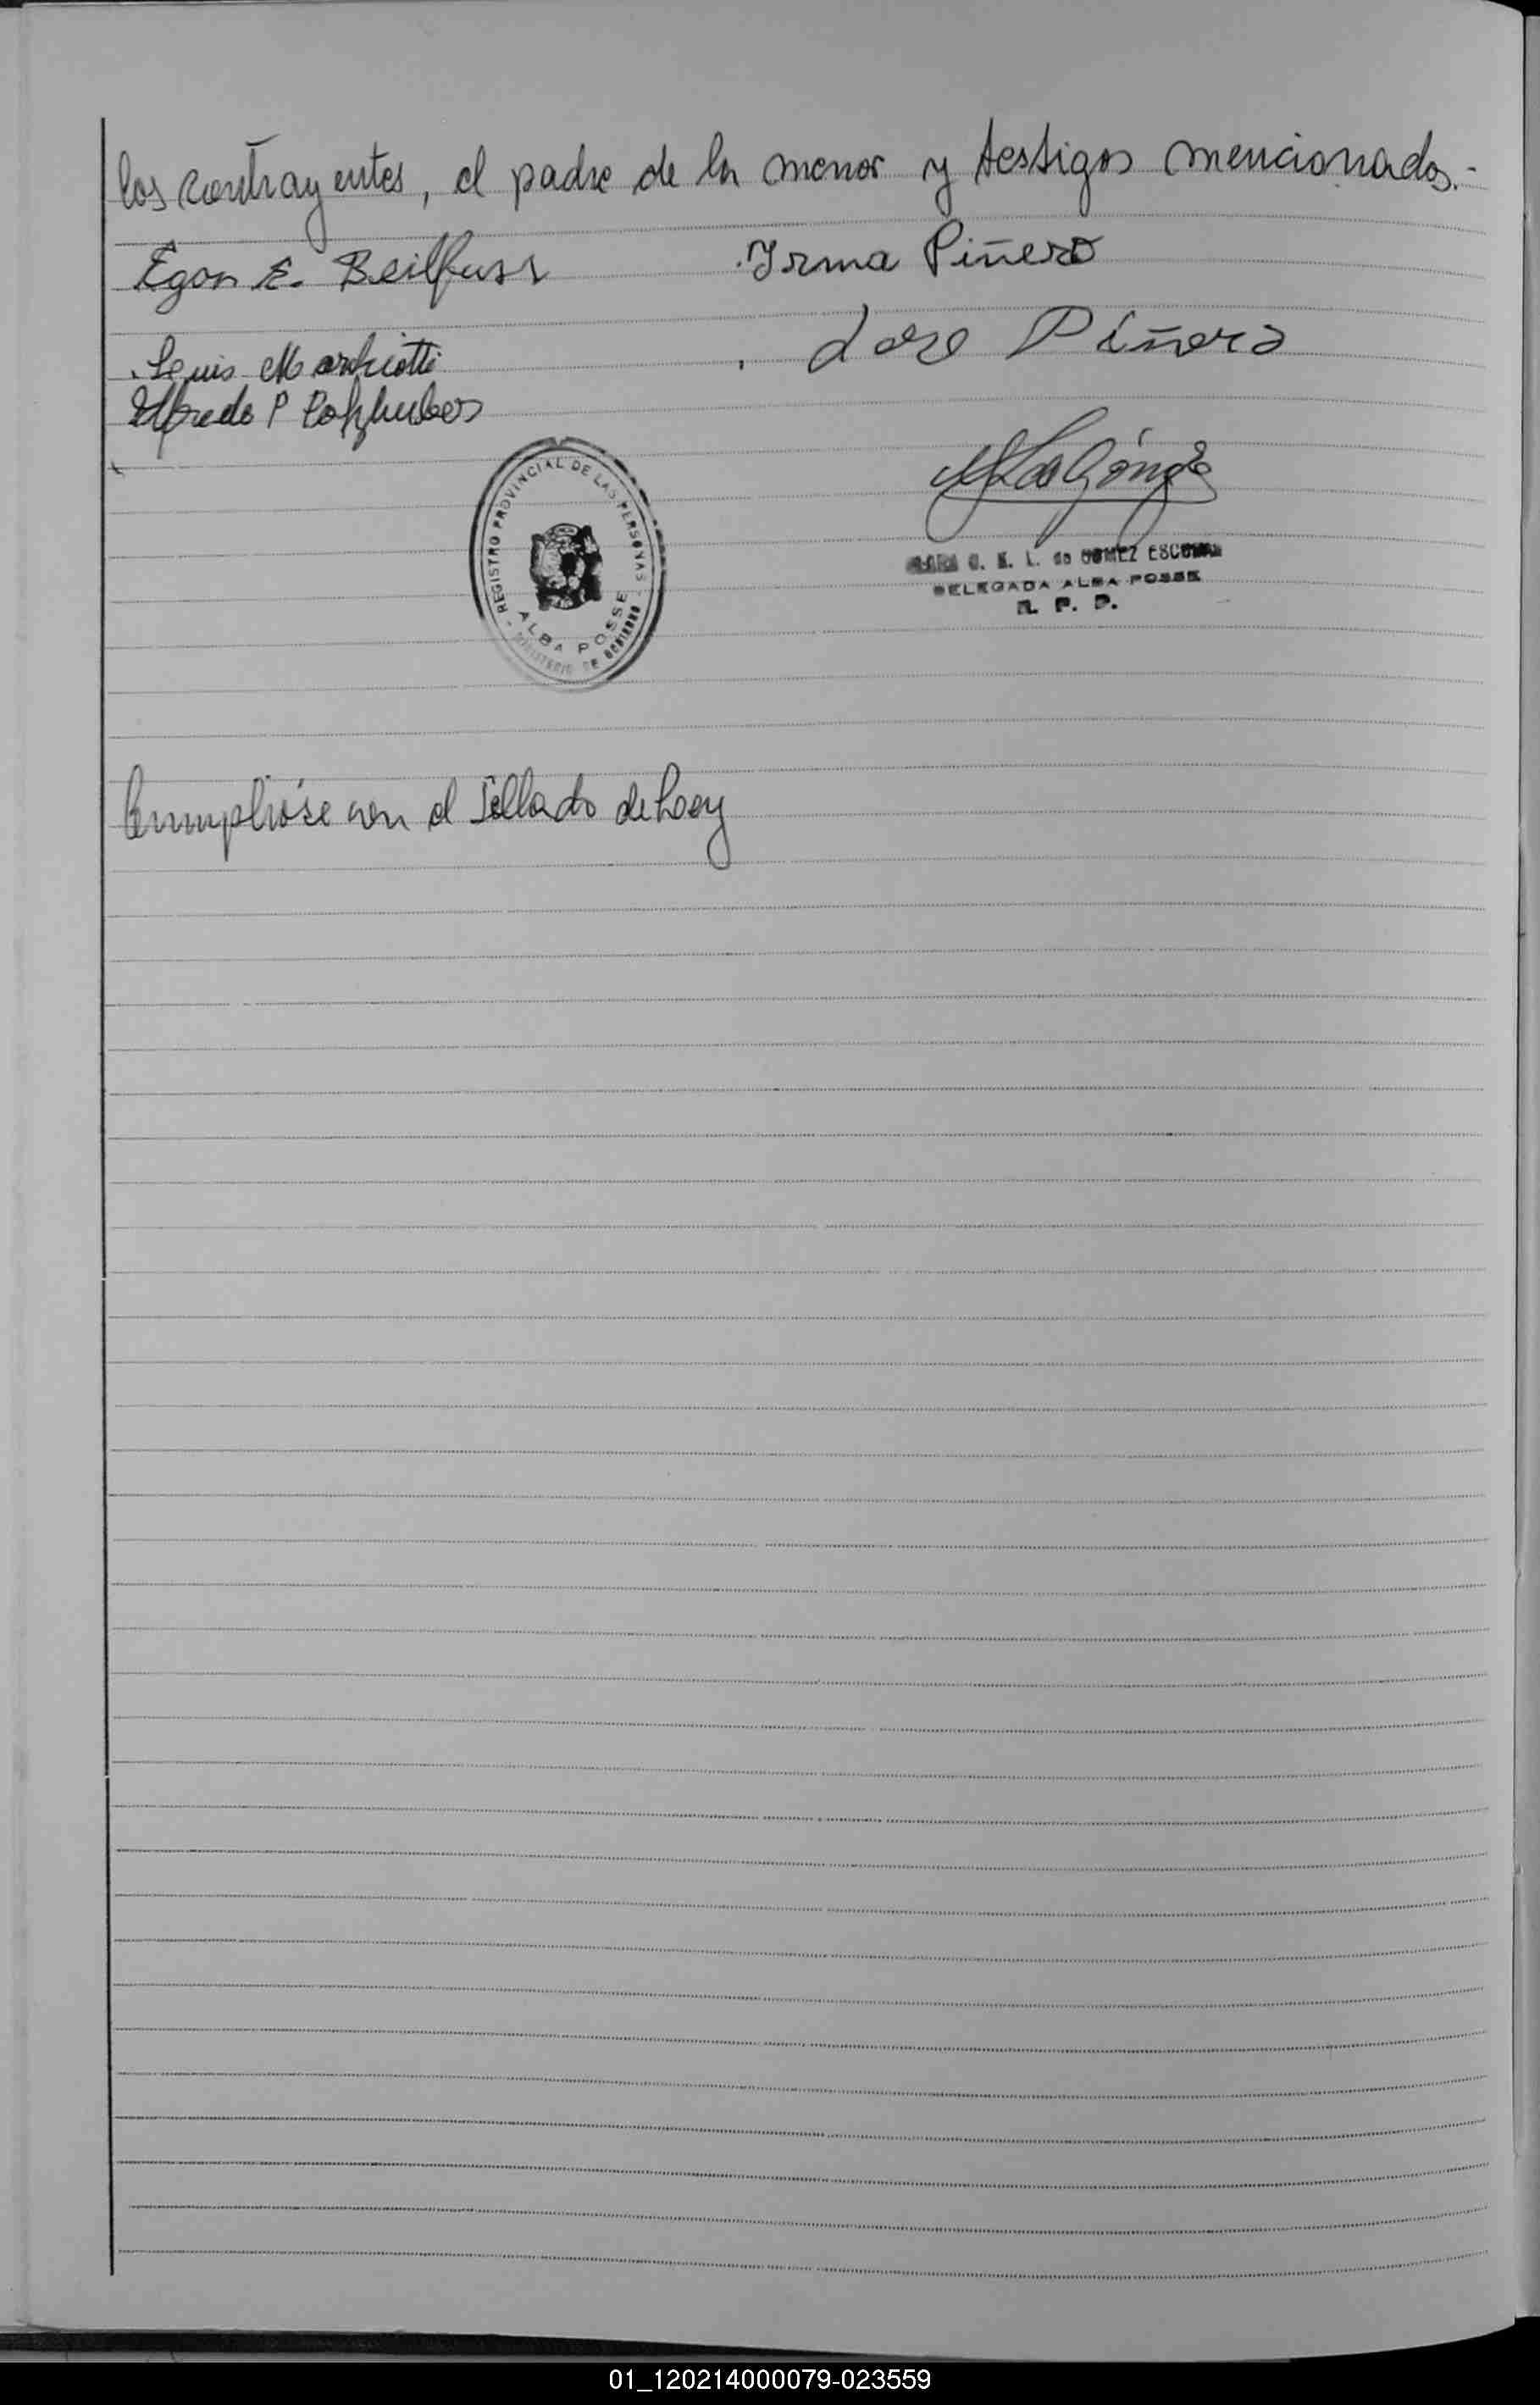 los contrayentes, el padre de la menor y testigos mencionados.-
Egon E. Beilfuss
Irma Piñero
Jose Piñero
Luis Marchiotti
Alfredo P
REGISTRO PROVINCIAL DE LAS PERSONAS
ALBA POSSE
MINISTERIO DE GOBIERNO
G. E. L. de GOMEZ ESCOBAR
DELEGADA ALBA POSSE
R. P. P.
Cumplióse con el Sellado de Ley
01_120214000079-023559